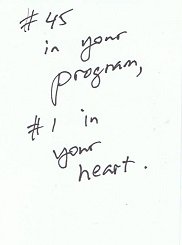 #45
in your
program,
#1 in
your
heart.